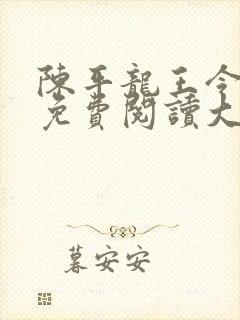 陳平龍王令
免費閱讀大
暮安安